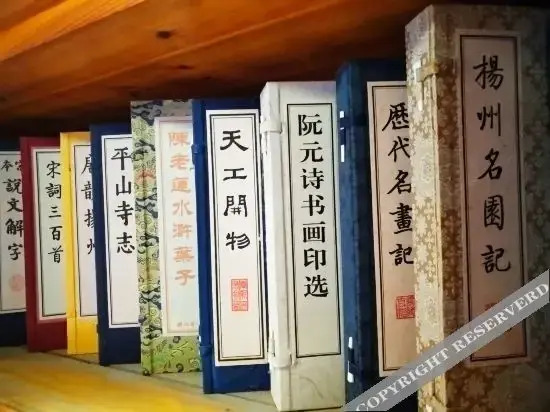 説文解字
宋詞三百首
唐韻揚州
平山寺志
陳老蓮水滸葉子
天工開物
阮元诗书画印选
歷代名畫記
揚州名園記
COPYRIGHT RESERVERD